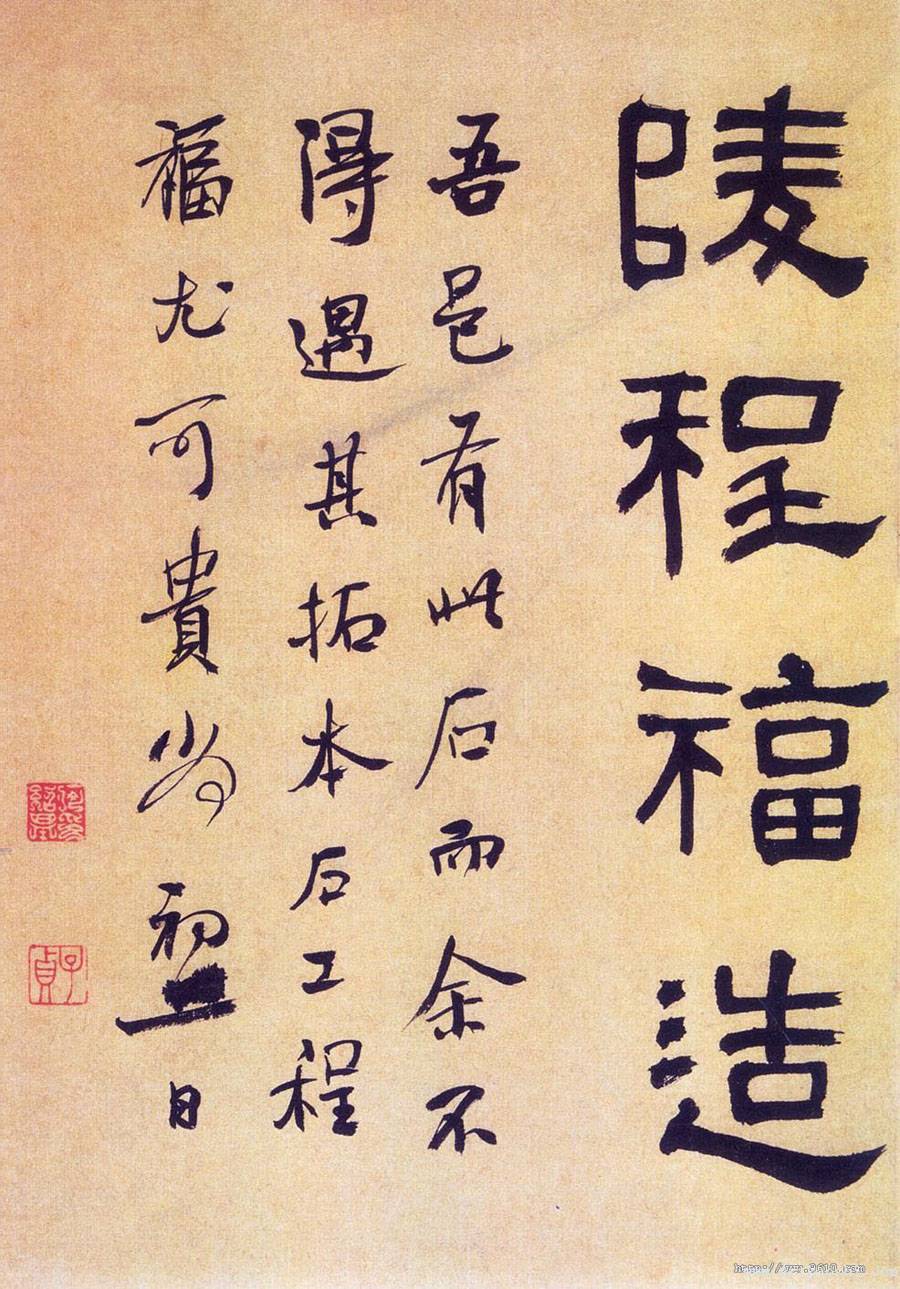 陵程福造
吾邑有此石而余不
得遇其拓本石工程
福尤可貴 日
何紹基印
子貞
http://www.9610.com